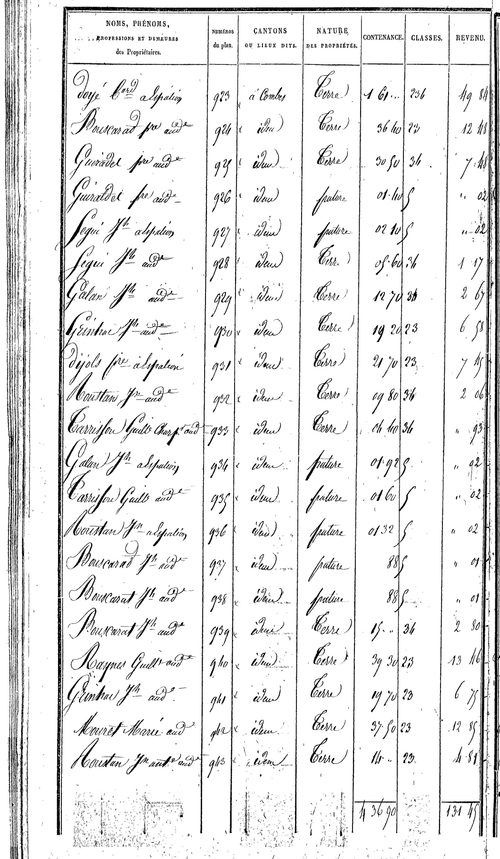 NOMS, PRÉNOMS, PROFESSIONS ET DEMEURES des Propriétaires. | NUMÉROS du plan. | CANTONS OU LIEUX DITS. | NATURE DES PROPRIÉTÉS. | CONTENANCE. | CLASSES. | REVENU.
923 à Combes Terre 1 61 .. 234 49 84
Bouscarad pre aude 924 idem Terre 36 40 23 12 48
Guiraldet pre aude 925 idem Terre 30 50 34 7 48
Guiraldet pre aude 926 idem pature 01 40 5 " 02
Segui Jh 927 idem pature 02 10 5 " 02
Segui Jh aude 928 idem Terre 05 60 34 1 17
Galan Jh aude 929 idem Terre 12 70 34 2 67
Geintrac Jh aude 930 idem Terre 19 20 23 6 58
pre 931 idem Terre 21 70 23 7 45
Roustan Jn aude 932 idem Terre 09 80 34 2 06
Tarrisson Guille aude 933 idem Terre 04 40 34 " 93
Galan Jh 934 idem pature 01 92 5 " 02
Tarrisson Guille aude 935 idem pature 01 60 5 " 02
Roustan Jn 936 idem pature 01 32 5 " 02
Bouscarad Jh aude 937 idem pature 88 5 " 01
Bouscarat Jh aude 938 idem pature 88 5 " 01
Bouscarat Jh aude 939 idem Terre 15 .. 34 2 80
Raynes Guille aude 940 idem Terre 39 30 23 13 46
Geintrac Jh aude 941 idem Terre 19 70 23 6 75
Mouret Marie aude 942 idem Terre 37 50 23 12 85
Roustan Jn aude 943 idem Terre 14 .. 23 4 81
4 36 90 131 45